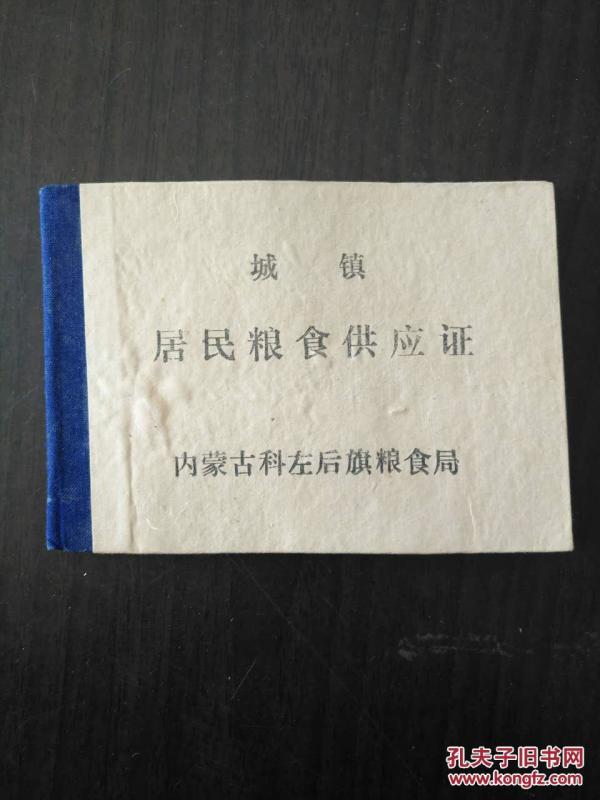 城 镇
居民粮食供应证
内蒙古科左后旗粮食局
孔夫子旧书网
www.kongfz.com